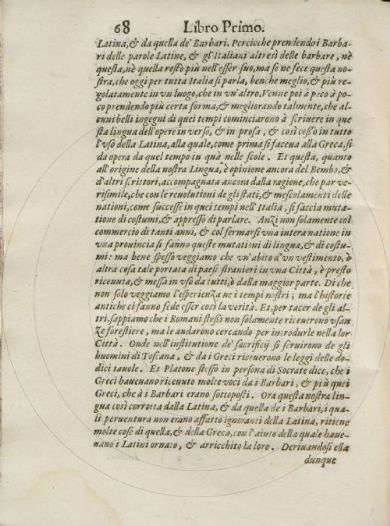 68 Libro Primo.
Latina,& da quella de' Barbari. Percioche prendendo i Barba-
ri delle parole Latine, & gl'Italiani altresì delle barbare, nè
questa, nè quella restò più nell'esser suo, ma se ne fece questa no-
stra, che oggi per tutta Italia si parla, benche meglio, & più re-
golatamente in vn luogo, che in vn'altro. Venne poi à poco à po-
co prendendo più certa forma,& megliorando talmente, che al-
cuni belli ingegni di quei tempi cominciarono à scriuere in que
sta lingua dell'opere in verso, & in prosa; & così cessò in tutto
l'vso della Latina, alla quale, come prima si faceua alla Greca, si
dà opera da quel tempo in quà nelle scole. Et questa, quanto
all'origine della nostra Lingua, è opinione ancora del Bembo, &
d'altri scrittori, accompagnata ancora dalla ragione, che par ve-
risimile, che con le reuolutioni de gli stati, & mescolamenti delle
nationi, come successe in quei tempi in Italia, si faccia muta-
tione di costumi, & appresso di parlare. Anzi non solamente col
commercio di tanti anni, & col fermarsi vna intera natione in
vna prouincia si fanno queste mutationi di lingua, & di costu-
mi: ma bene spesso veggiamo che vn'abito d'vn vestimento, ò
altra cosa tale portata di paesi stranieri in vna Città, è presto
riceuuta, & messa in vso da tutti, ò dalla maggior parte. Di che
non solo veggiamo l'esperienza ne i tempi nostri; ma l'historie
antiche ci fanno fede esser così la verità. Et, per tacer de gli al-
tri, sappiamo che i Romani stessi non solamente riceuerono vsan
ze forestiere, ma le andarono cercando per introdurle nella lor
Città. Onde nell'institutione de' sacrificij si seruirono de gli
huomini di Toscana, & da i Greci riceuerono le leggi delle do-
dici tauole. Et Platone stesso in persona di Socrate dice, che i
Greci haueuano riceuuto molte voci da i Barbari, & più quei
Greci, che à i Barbari erano sottoposti. Ora questa nostra lin-
gua così corrotta dalla Latina, & da quella de i Barbari, i qua-
li peruentura non erano affatto ignoranti della Latina, ritiene
molte cose di quella, & della Greca, con l'aiuto della quale haue-
uano i Latini ornato, & arricchito la loro. Deriuandosi ella
dunque